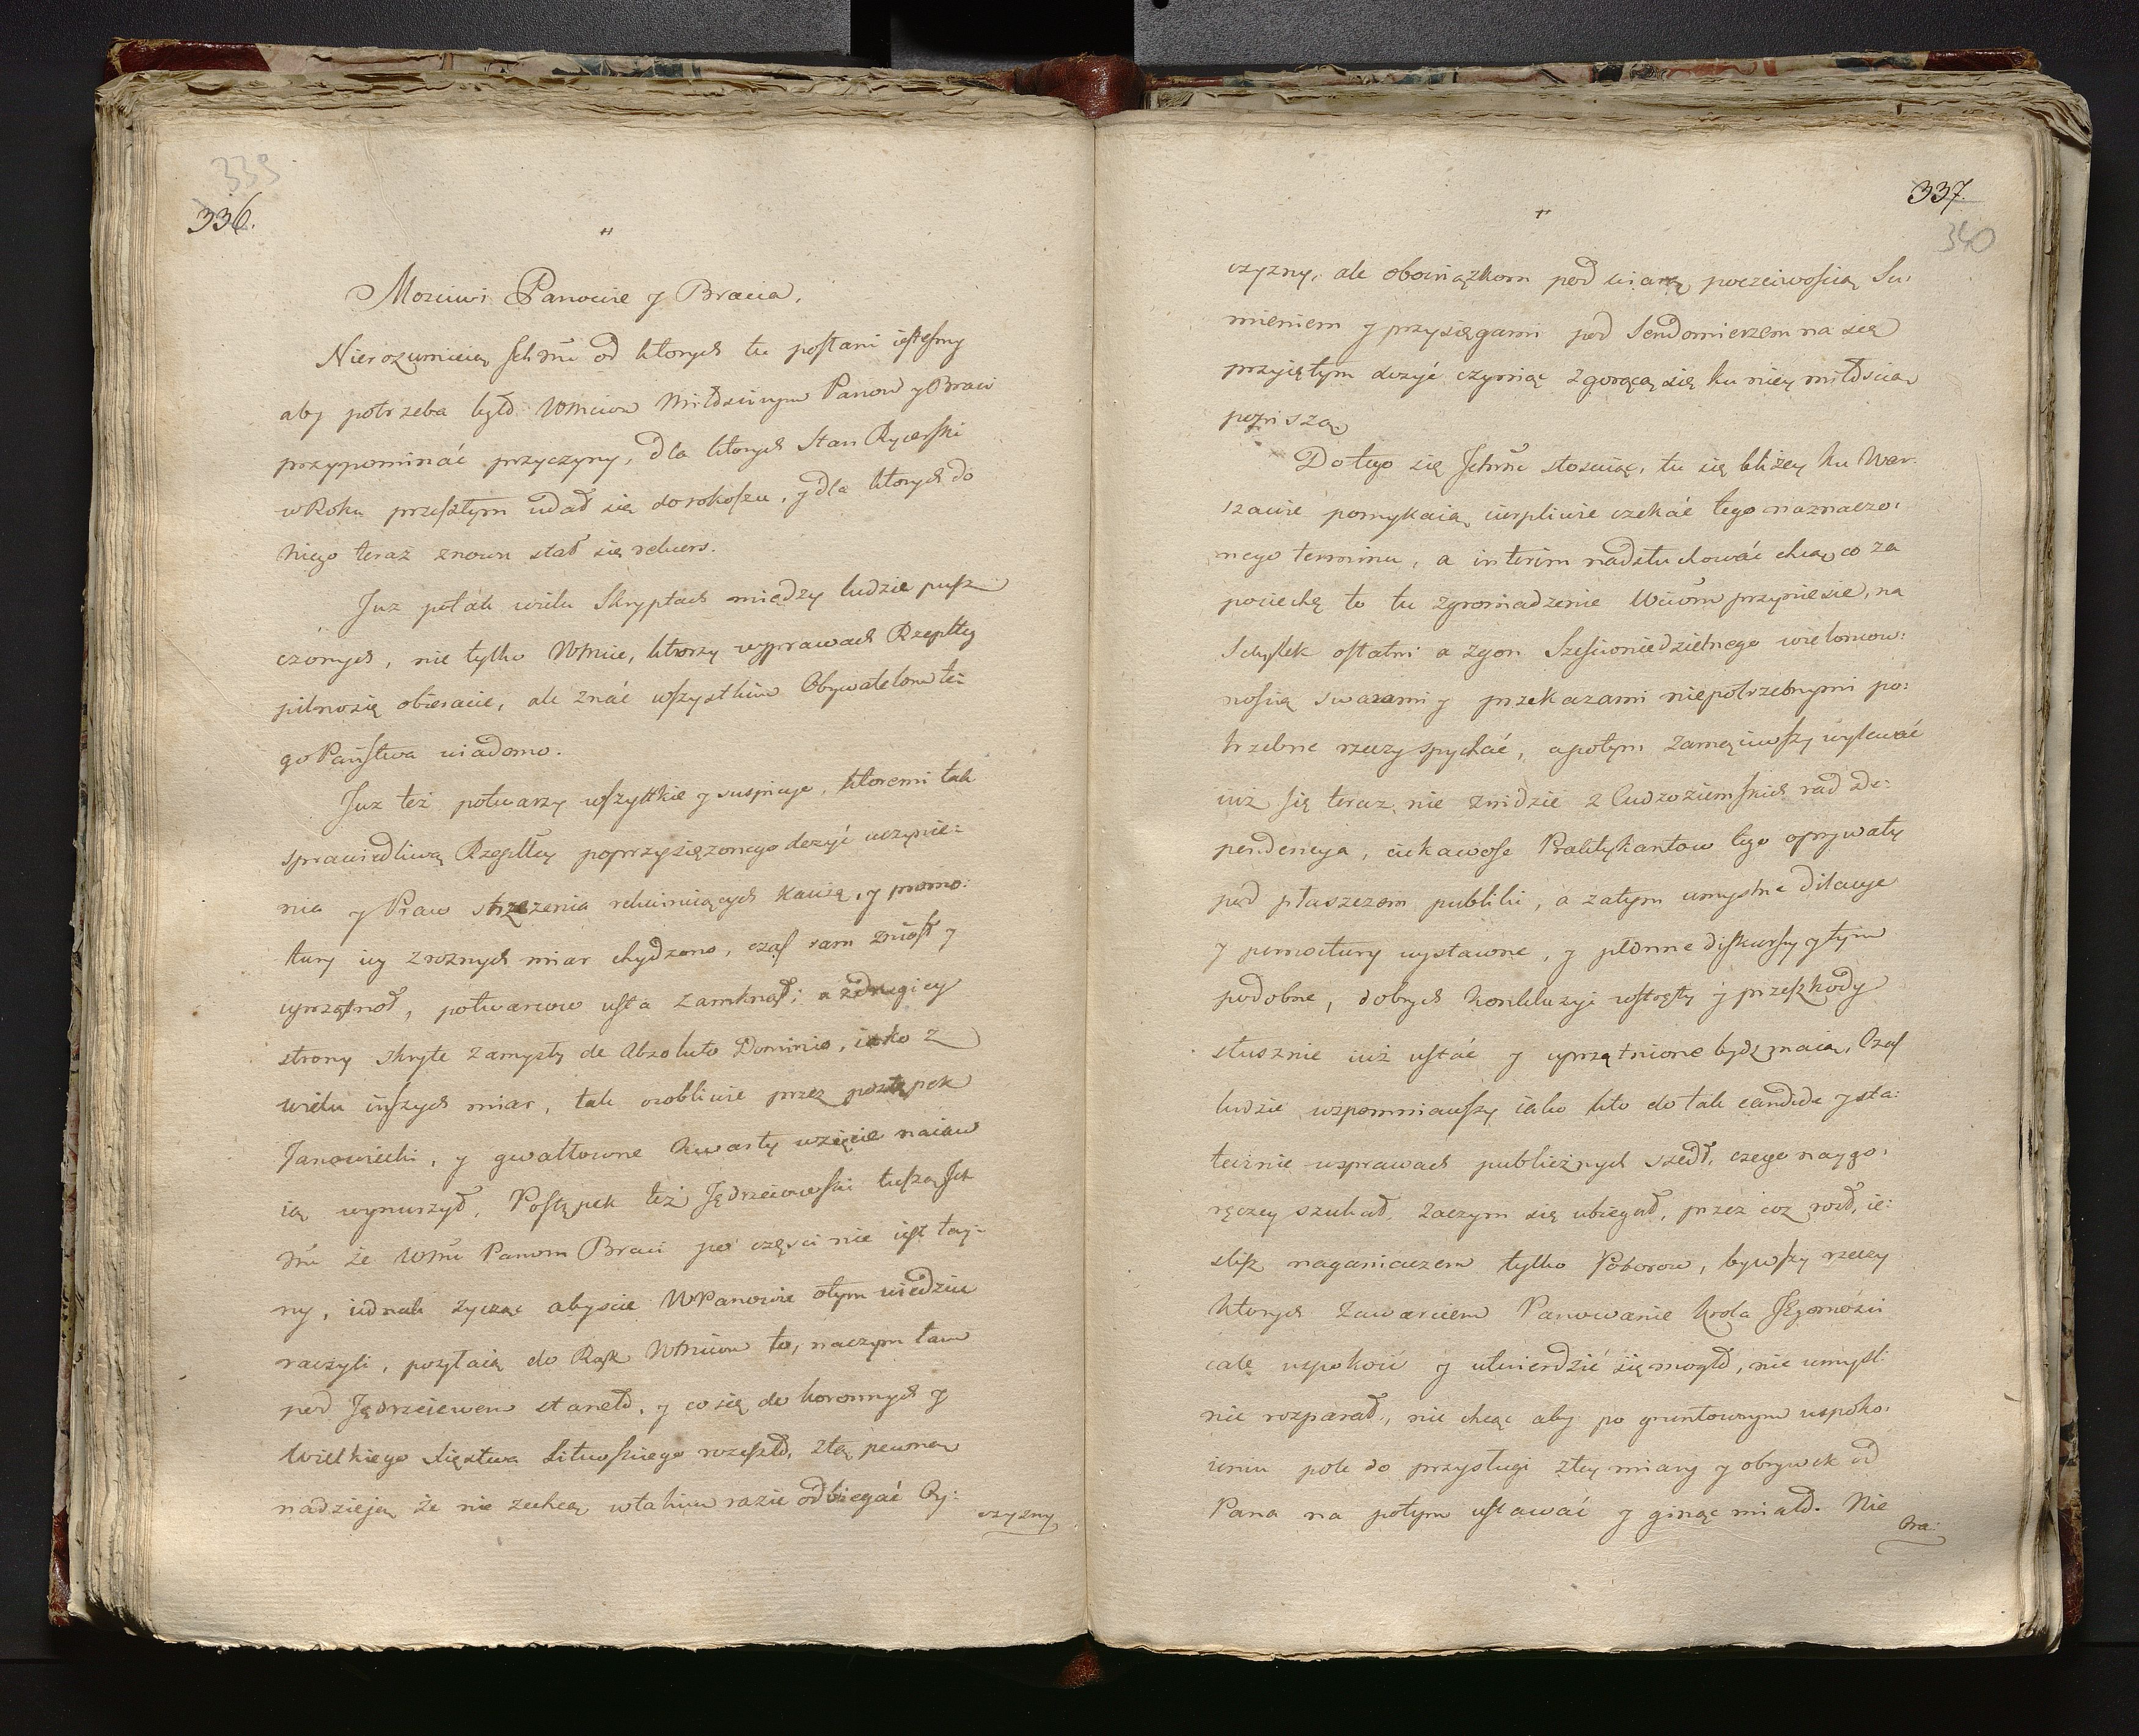 339
336.
Mozciwi Panowie y Bracia,
Nierozumieią Ichmć od ktorych tu posłani iestesmy
aby potrzeba było Wmciow Miłosciwym Panow y Braci
przypominać przyczyny, dla ktorych Stan Rycerski
w Roku przeszłym udał się do rokoszu, y dla ktorych do
niego teraz znowu stał się rekurs.
Juz potak wielu Skryptach między ludzie pusz
czonych, nie tylko Wmcie, ktorzy wsprawach Rzeplty
pilnosię obieracie, ale znać wszystkim Obywatelom te:
go Państwa wiadomo.
Juz też potwarzy wszyttkie y suspicye, ktoremi tak
sprawiedliwą Rzeplty poprzysięzonego dozyć uczynie:
nia y Praw strzezenia rekuiruiących kauzę, y promo:
tury iey z roznych miar chydzono, czas sam zniosł y
uprzątnoł, potwarcow usta zamknoł; a z drugiey
strony skryte zamysły de Absoluto Dominio, iako z
wielu inszych miar, tak osobliwie przez postępek
Janowiecki, y gwałtowne Kwarty wzięcie naiaw
ią wynurzył. Postępek też Jędrzeiowski tuszą Ich
mć że Wmć Panom Braci po częsci nie iest tay:
ny, iednak zycząc abyscie WPanowie otym wiedziec
raczyli, posyłaią do Rąk Wmciow to, naczym tam
pod Jędrzeiewem stanęło, y co się do koronnych y
Wielkiego Xięstwa Litewskiego rozeszło, z tą pewną
nadzieją że nie zechcą wtakim razie odbiegać Oy:
czyzny
337.
340
czyzny, ale obowiązkom pod wiarą poczciwoscią Su:
mieniem y przysięgami pod Sendomierzem na się
przyiętym dozyć czyniąc z gorącą się ku niey miłoscią
popiszą
Do tego się Ichmć stosuiąc, tu się bliżey ku War:
szawie pomykaią cierpliwie czekać tego naznaczo:
nego terminu, a interim nadsłuchować chcą co za
pociechę to tu zgromadzenie Wciom przyniesie, na
Schyłek ostatni a zgon Szesciоniedzielnego wielomow:
noscią swarami y przekazami niepotrzebnymi po:
trzebne rzeczy spychać, apotym zamąciwszy wylewać
iuż się teraz nie znidzie z Cudzoziemskich rad De:
pendencya, ciekawosc Praktykantow tego oprywaty
pod płaszczem publiki, a zatym umyslne dilacye
y pernoctury wystawne, y płonne diskursy y tym
podobne, dobrych konkluzyi wstręty y przeszkody
słusznie iuż ustać y uprzątnione bydz maią. Czas
ludzie wzpomniawszy iako kto do tak candide y sta:
tecznie wsprawach publicznych szedł, czego naygo:
ręczey szukał, zaczym się ubiegał, przez coz rosł, ie:
slisz naganiaczem tylko Poborow, bywszy rzeczy
ktorych zawarciem Panowanie Krola JEgomosci
całe uspokoić y utwierdzić się mogło, nie umysl:
nie rozparał, nie chcąc aby po gruntownym uspoko:
ieniu pole do przysługi z tey miary y obrywek od
Pana na potym ustawać y ginąc miało. Nie
Bra: